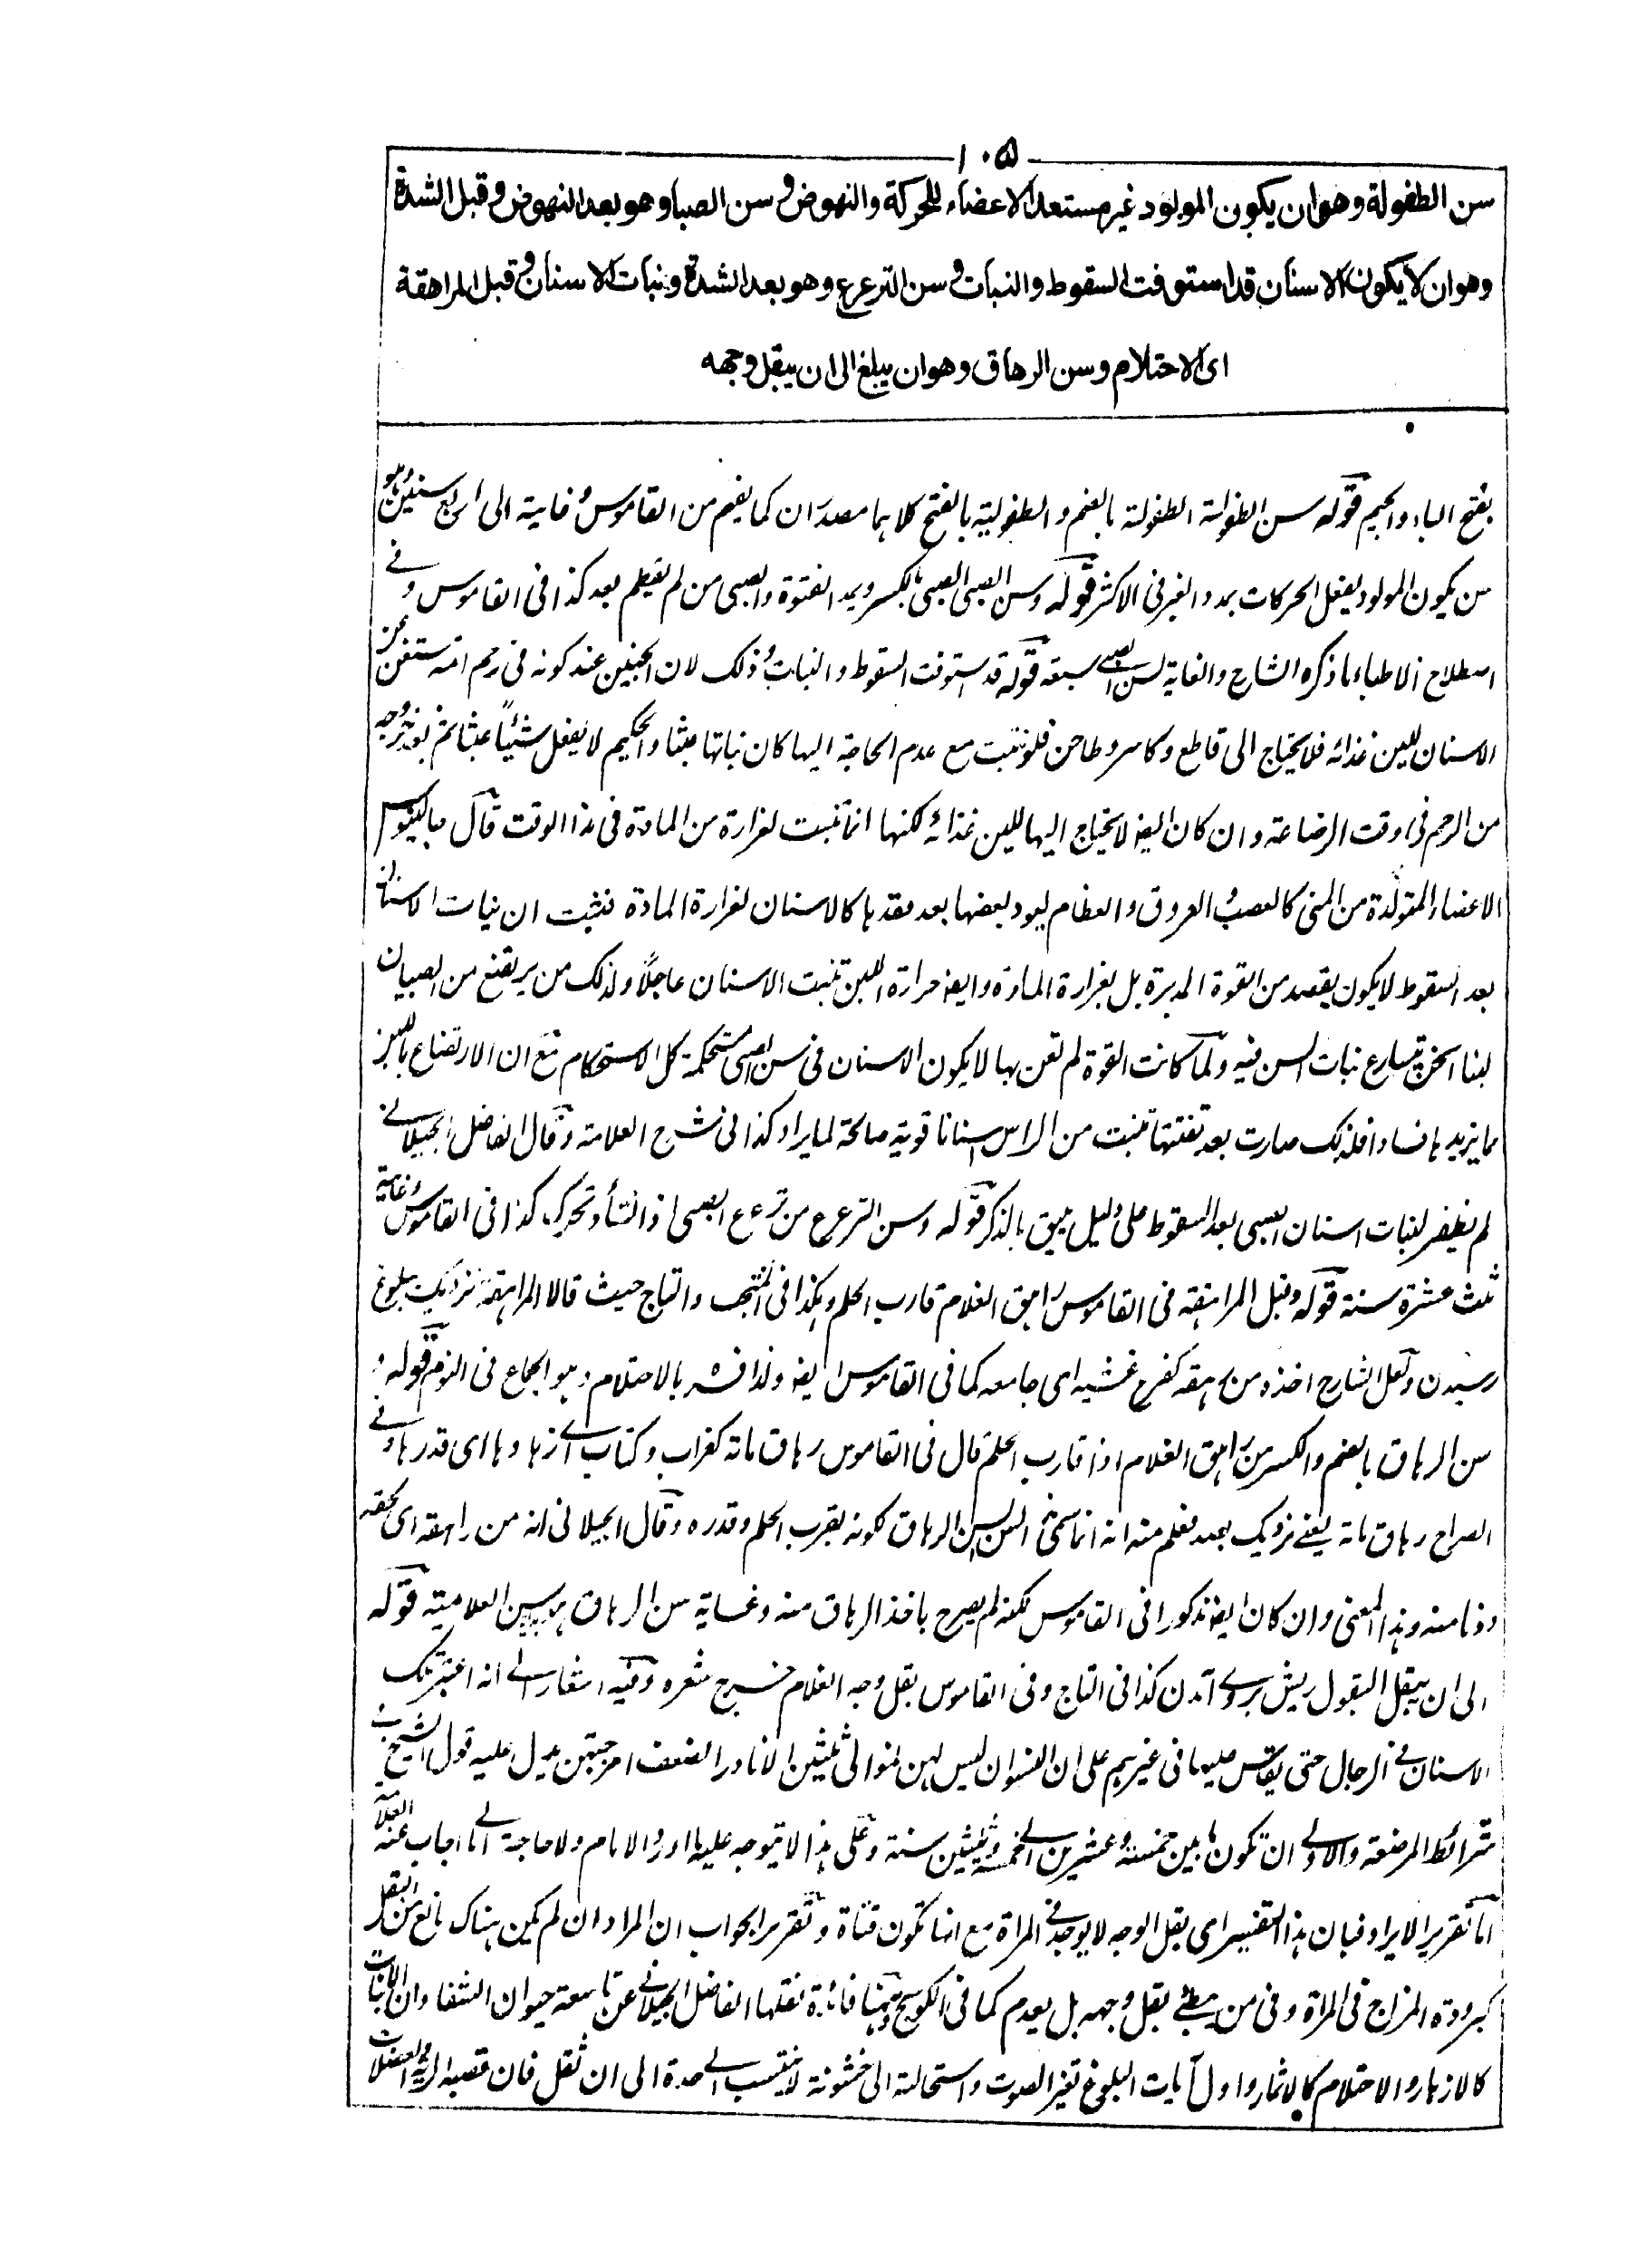 ١٠٥
سن الطفولة وهوان يكون المولود غير مستعد الاعضاء للحركة والنهوض و سن الصبا وهو بعد النهوض وقبل الشدة
وهوان لا يكون الاسنان قد استوفت السقوط والنبات و سن الترعرع وهو بعد الشدة ونبات الاسنان وقبل المراهقة
اى الاحتلام وسن الرهاق وهوان يبلغ الى ان يبقل وجهه
بفتح الباء والجيم قوله سن الطفولة الطفولة بالضم والطفولية بالفتح كلاهما مصدران كما يفهم من القاموس وغاية الى اربع سنين وهو
سن يكون المولود يفعل الحركات بمدد الغير فى الاكثر قوله وسن الصبى الصبى بالكسر ويمد الفتوة والصبى من لم يفطم بعد كذا فى القاموس وفے
اصطلاح الاطباء ما ذكره الشارح والغاية لسن الصبے سبعة قوله قد استوفت السقوط والنبات وذلك لان الجنين عند كونه فى رحم امه مستغن عن
الاسنان للين غذائه فلا يحتاج الى قاطع وكاسر وطاحن فلو نبتت مع عدم الحاجة اليها كان نباتها عبثا والحكيم لا يفعل شيئاً عبثا ثم بعد خروجه
من الرحم فى وقت الرضاعة وان كان ايض لا يحتاج اليها للين غذائه لكنها انما تنبت لغزارة من المادة فى هذا الوقت قال جالينوس
الاعضاء المتولدة من المنى كالعصب والعروق والعظام يعود بعضها بعد فقدها كالاسنان لغزارة المادة فثبت ان نبات الاسنان
بعد السقوط لا يكون بقصد من القوة المدبرة بل بغزارة المادة وايض حرارة اللبن تنبت الاسنان عاجلاً ولذلك من يرتضع من الصبيان
لبنا اسخن يتسارع نبات السن فيه ولما كانت القوة لم تعن بها لا يكون الاسنان فى سن الصبى مستحكمة كل الاستحكام مع ان الارتضاع باللبن
مما يزيدها فسادا فلذلك صارت بعد تفتتها تنبت من الراس اسنانا قوية صالحة لما يراد كذا فى شرح العلامة وقال الفاضل الجيلانے
لم نظفر لنبات اسنان الصبى بعد السقوط على دليل يليق بالذكر قوله وسن الترعرع من ترعرع الصبى اذا نشأ وتحرك كذا فى القاموس وغايته
ثلث عشرة سنة قوله وقبل المراهقة فى القاموس راهق الغلام قارب الحلم وهكذا فى المنتخب والتاج حيث قالا المراهقة نزديك ببلوغ
رسيدن ولعل الشارح اخذه من رهقه كفرح غشيه اى جامعه كما فى القاموس ايض ولذا فسره بالاحتلام وهو الجماع فى النوم قوله و
سن الرهاق بالضم والكسر من راهق الغلام اذا قارب الحلم قال فى القاموس رهاق مائة كغراب وكتاب اے زهاوها اى قدرها وفے
الصراح رهاق مائة يعنے نزديك بصد فعلم منه انه انما سمى هذا السن بسن الرهاق لكونه بقرب الحلم وقدره وقال الجيلانى انه من راهقه اى لحقه
ودنا منه وهذا المعنى وان كان ايض مذكورا فى القاموس لكنه لم يصرح باخذ الرهاق منه وغاية سن الرهاق سن الغلامية قوله
الى ان يبقل البقول ريش بروے آمدن كذا فى التاج وفى القاموس بقل وجه الغلام خرج شعره وفيه اشعار الے انه اعتبر تلك
الاسنان فے الرجال حتى يقاس عليها فى غيرهم على ان النسوان ليس لهن نمو الى ثلثين الا نادرا لضعف امزجتهن يدل عليه قول الشيخ فے
شرائط المرضعة والاولے ان تكون ما بين خمسة وعشرين الے خمسة وثلثين سنة وعلى هذا لا يتوجه عليه ما اورد الامام ولا حاجة الے ما اجاب عنه العلامة
اما تقرير الايراد فبان هذا التفسير اى بقل الوجه لا يوجد فے المراة مع انها تكون فتاة وتقرير الجواب ان المراد ان لم يكن هناك مانع من البقل
كبرودة المزاج فى المراة وفى من يبطئے بقل وجهه بل يعدم كما فى الكوسج وههنا فائدة نقلها الفاضل الجيلانے عن تاسعة حيوان الشفا وان الانبات
كالازهار والاحتلام كالاثمار واول آيات البلوغ تغير الصوت واستحالته الى خشونة لا ينتسب الے حدة الى ان ثقل فان قصبة الرية والعضلات